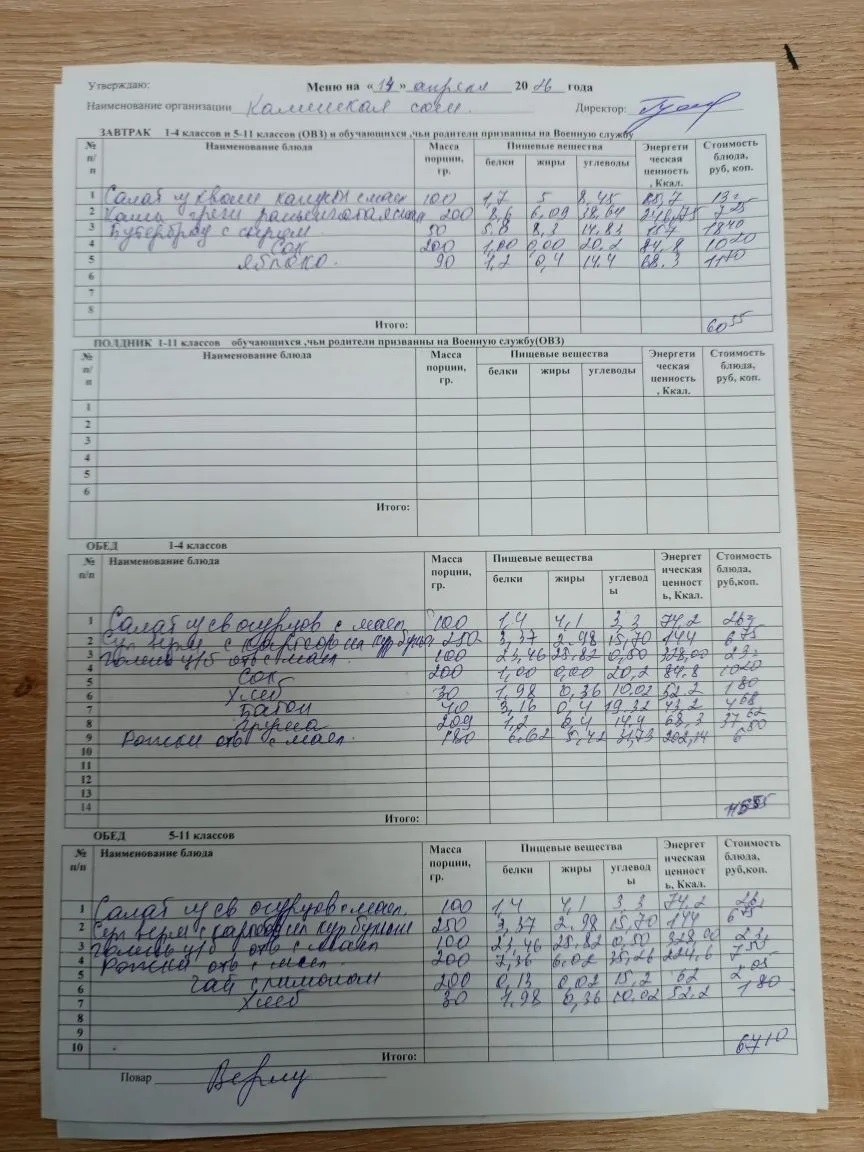 Утверждаю: Меню на «14» апреля 2026 года
Наименование организации Каменская сош Директор:
ЗАВТРАК 1-4 классов и 5-11 классов (ОВЗ) и обучающихся ,чьи родители призванны на Военную службу
№ п/п Наименование блюда Масса порции, гр. Пищевые вещества Энергети ческая ценность , Ккал. Стоимость блюда, руб, коп.
белки жиры углеводы
1 Салат из квашн капусты с масл 100 1,7 5 8,45 85,7 13=
2 Каша греч 200 8,6 6,09 38,64 7 25
3 Бутерброд с сыром 50 5,8 8,3 14,83 157 18 40
4 Сок 200 1,00 0,00 20,2 84,8 10 20
5 яблоко. 90 1,2 0,4 14.4 68.3 11 70
6
7
8
Итого: 60 55
ПОЛДНИК 1-11 классов обучающихся ,чьи родители призванны на Военную службу(ОВЗ)
№ п/п Наименование блюда Масса порции, гр. Пищевые вещества Энергети ческая ценность , Ккал. Стоимость блюда, руб, коп.
белки жиры углеводы
1
2
3
4
5
6
Итого:
ОБЕД 1-4 классов
№ п/п Наименование блюда Масса порции, гр. Пищевые вещества Энергет ическая ценност ь, Ккал. Стоимость блюда, руб,коп.
белки жиры углевод ы
1 Салат из св огурцов с масл 100 1,4 4,1 3,3 74,2 26=
2 Суп верм с картоф на кур бульоне 250 3,37 2.98 15,70 144 6 75
3 Голень ц/б отв с масл. 100 23,46 25,82 0,50 328,00 23=
4 Сок 200 1,00 0,00 20,2 84.8 10 20
5 Хлеб 30 1,98 0,36 10,02 52.2 1 80
6 Батон 40 3,16 0,4 19,32 4 68
7 груша 209 1,2 0,4 14,4 68,3 37 62
8 Рожки отв с масл. 180 6.62 5,42 31,73 202,14 6 50
9
10
11
12
13
14
Итого:
ОБЕД 5-11 классов
№ п/п Наименование блюда Масса порции, гр. Пищевые вещества Энергет ическая ценност ь, Ккал. Стоимость блюда, руб,коп.
белки жиры углевод ы
1 Салат из св огурцов с масл. 100 1,4 4,1 3.3 74,2 26=
2 Суп верм с картоф на кур бульоне 250 3,37 2.98 15,70 144 6 75
3 Голень ц/б отв с масл 100 23,46 25,82 0,50 328,00 23=
4 Рожки отв с масл 200 7,36 6,02 35,26 224,6 7 50
5 Чай с лимоном 200 0,13 0,02 15,2 62 2 05
6 Хлеб 30 1,98 0,36 10,02 52.2 1 80
7
8
9
10
Итого: 67 10
Повар